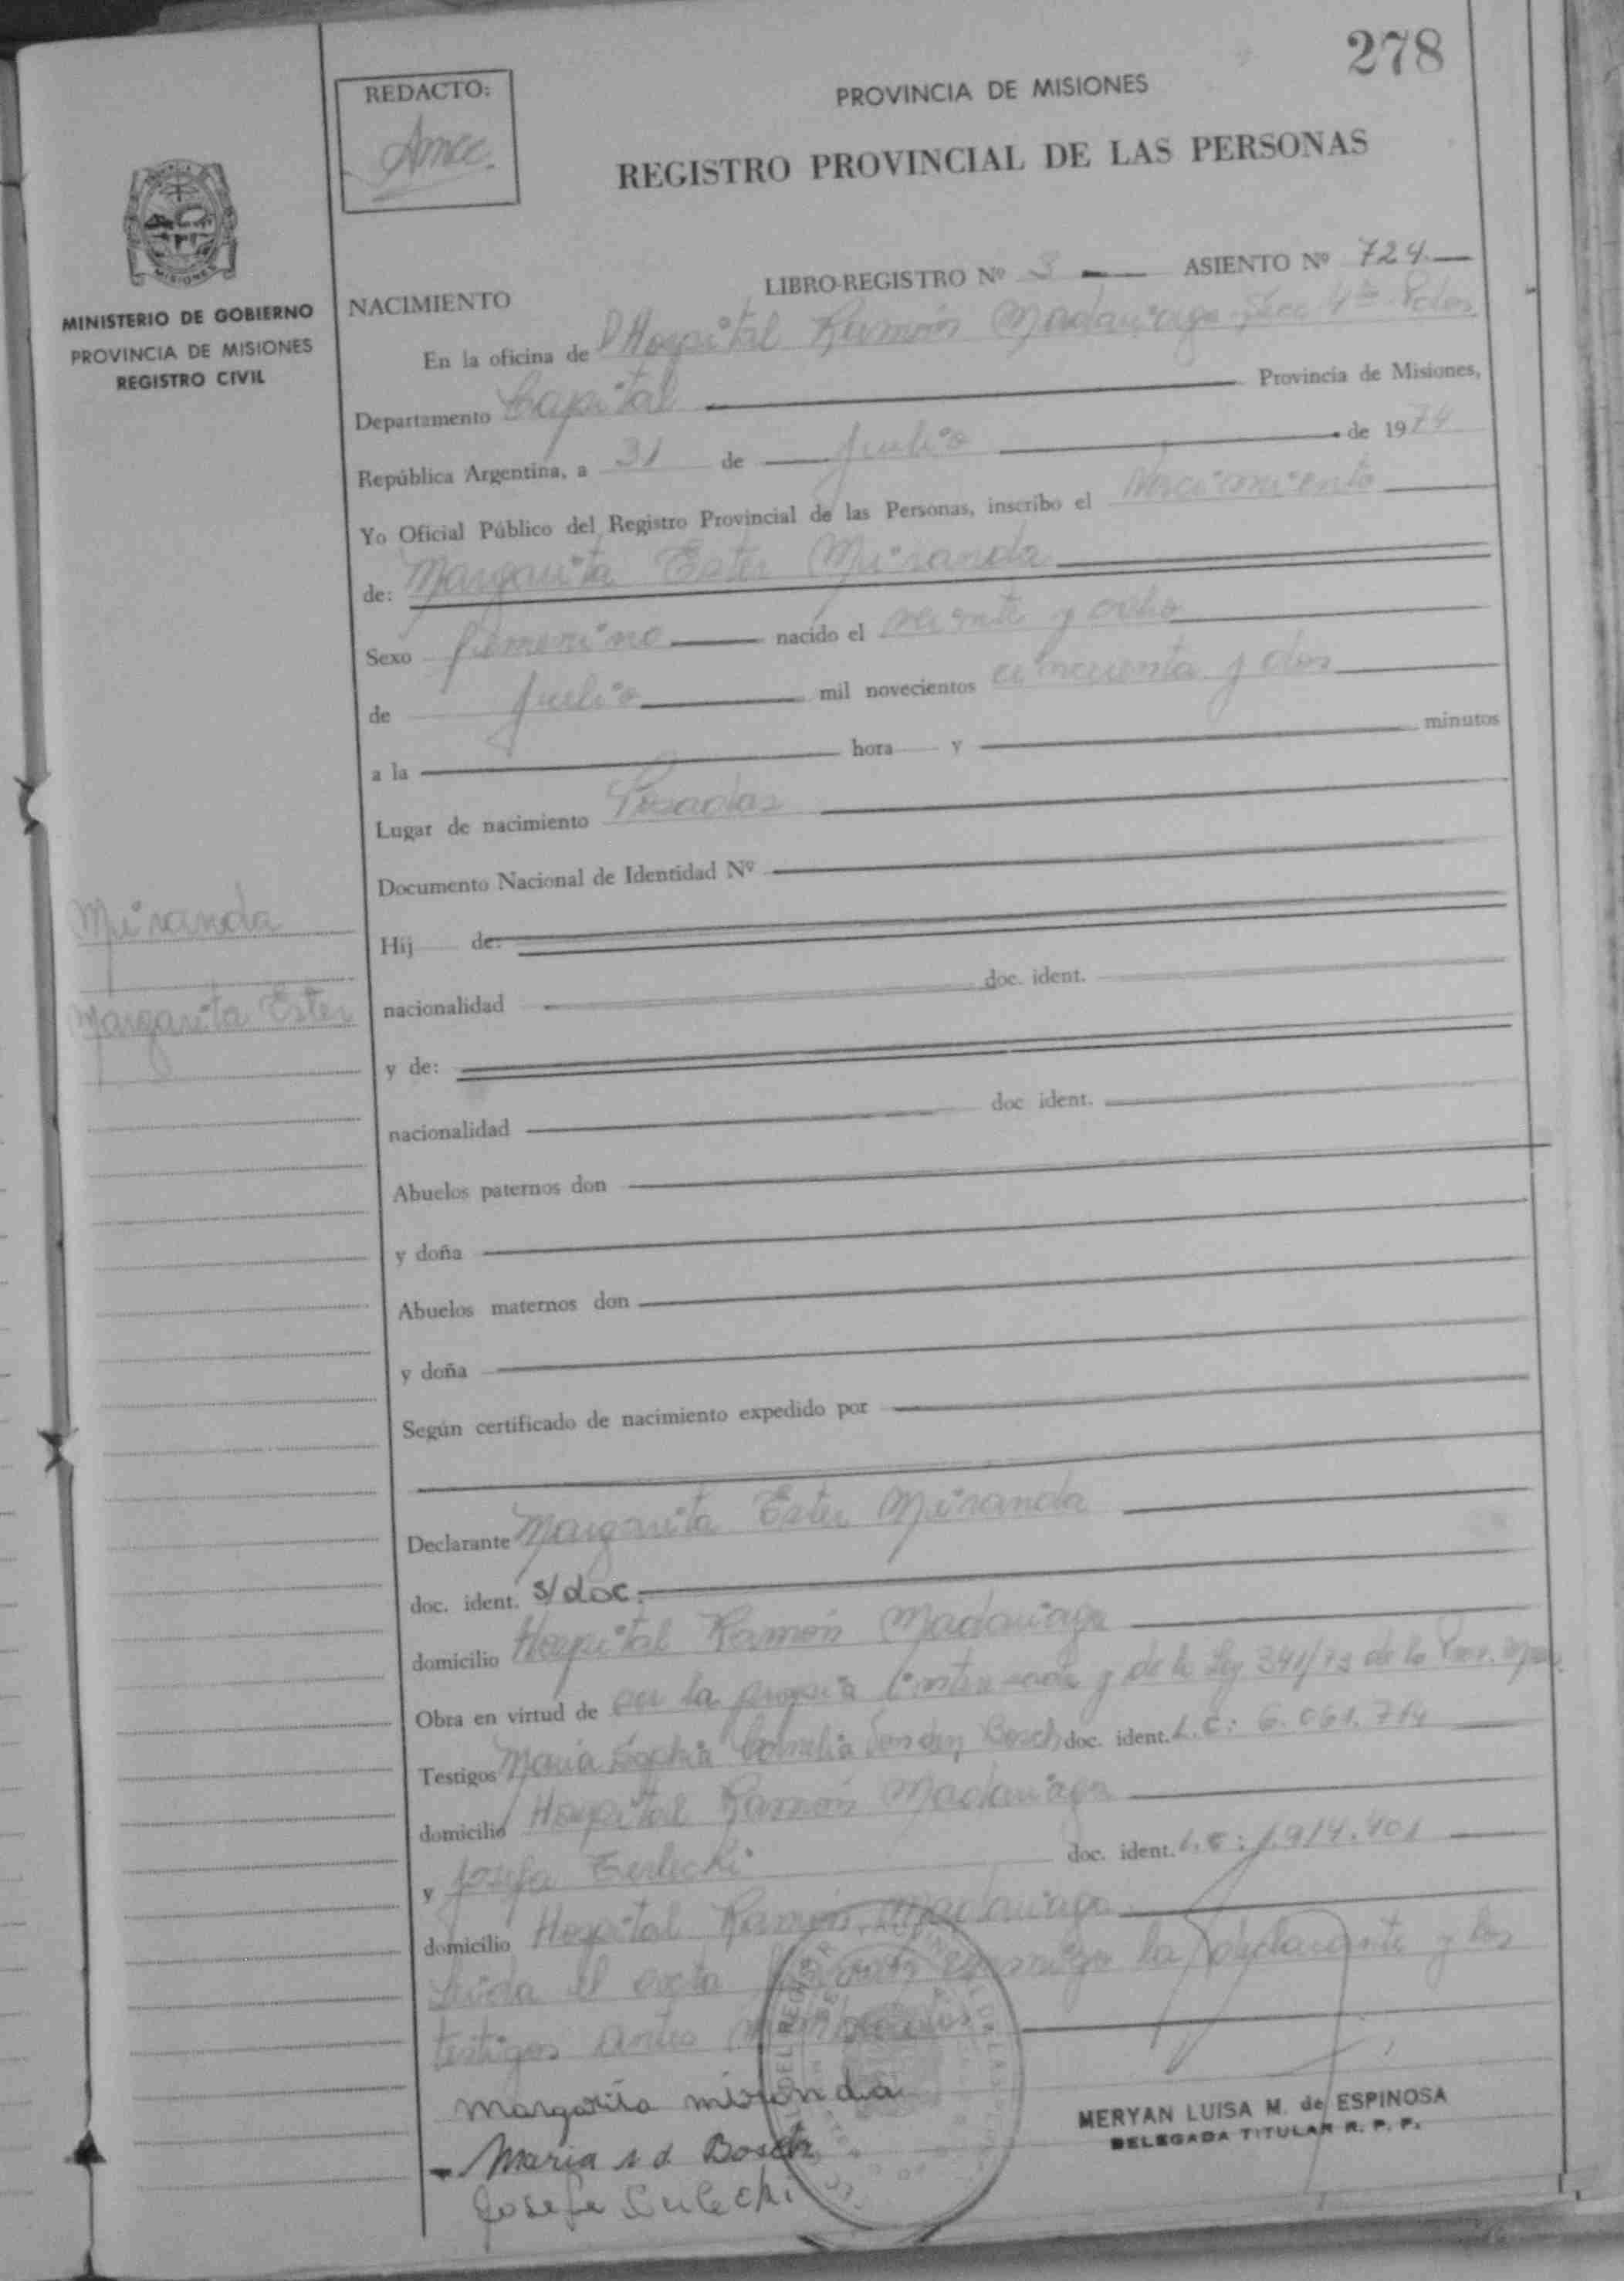 278
REDACTO:
PROVINCIA DE MISIONES
REGISTRO PROVINCIAL DE LAS PERSONAS
MISIONES
MINISTERIO DE GOBIERNO
PROVINCIA DE MISIONES
REGISTRO CIVIL
LIBRO-REGISTRO Nº 3 ASIENTO Nº 724
NACIMIENTO
En la oficina de Hospital Ramón Madariaga
Departamento Capital Provincia de Misiones,
República Argentina, a 31 de julio de 1974
Yo Oficial Público del Registro Provincial de las Personas, inscribo el Nacimiento
de: Margarita Ester Miranda
Sexo femenino nacido el veinte y ocho
de julio mil novecientos cincuenta y dos
a la hora y minutos
Lugar de nacimiento Posadas
Documento Nacional de Identidad Nº
Miranda
Margarita Ester
Hij de:
nacionalidad doc. ident.
y de:
nacionalidad doc ident.
Abuelos paternos don
y doña
Abuelos maternos don
y doña
Según certificado de nacimiento expedido por
Declarante Margarita Ester Miranda
doc. ident. s/doc.
domicilio Hospital Ramón Madariaga
Obra en virtud de por la propia y de la Ley 341/73 de la
Testigos Maria Sophia Cornelia Bosch doc. ident. L.C: 6.061.714
domicilio Hospital Ramón Madariaga
y Josefa doc. ident. 1.914.401
domicilio Hospital Ramón Madariaga
Leida el acta la declarante y los
testigos antes
margarita miranda
Maria Bosch
Josefa
MERYAN LUISA M. de ESPINOSA
DELEGADA TITULAR R. P. P.